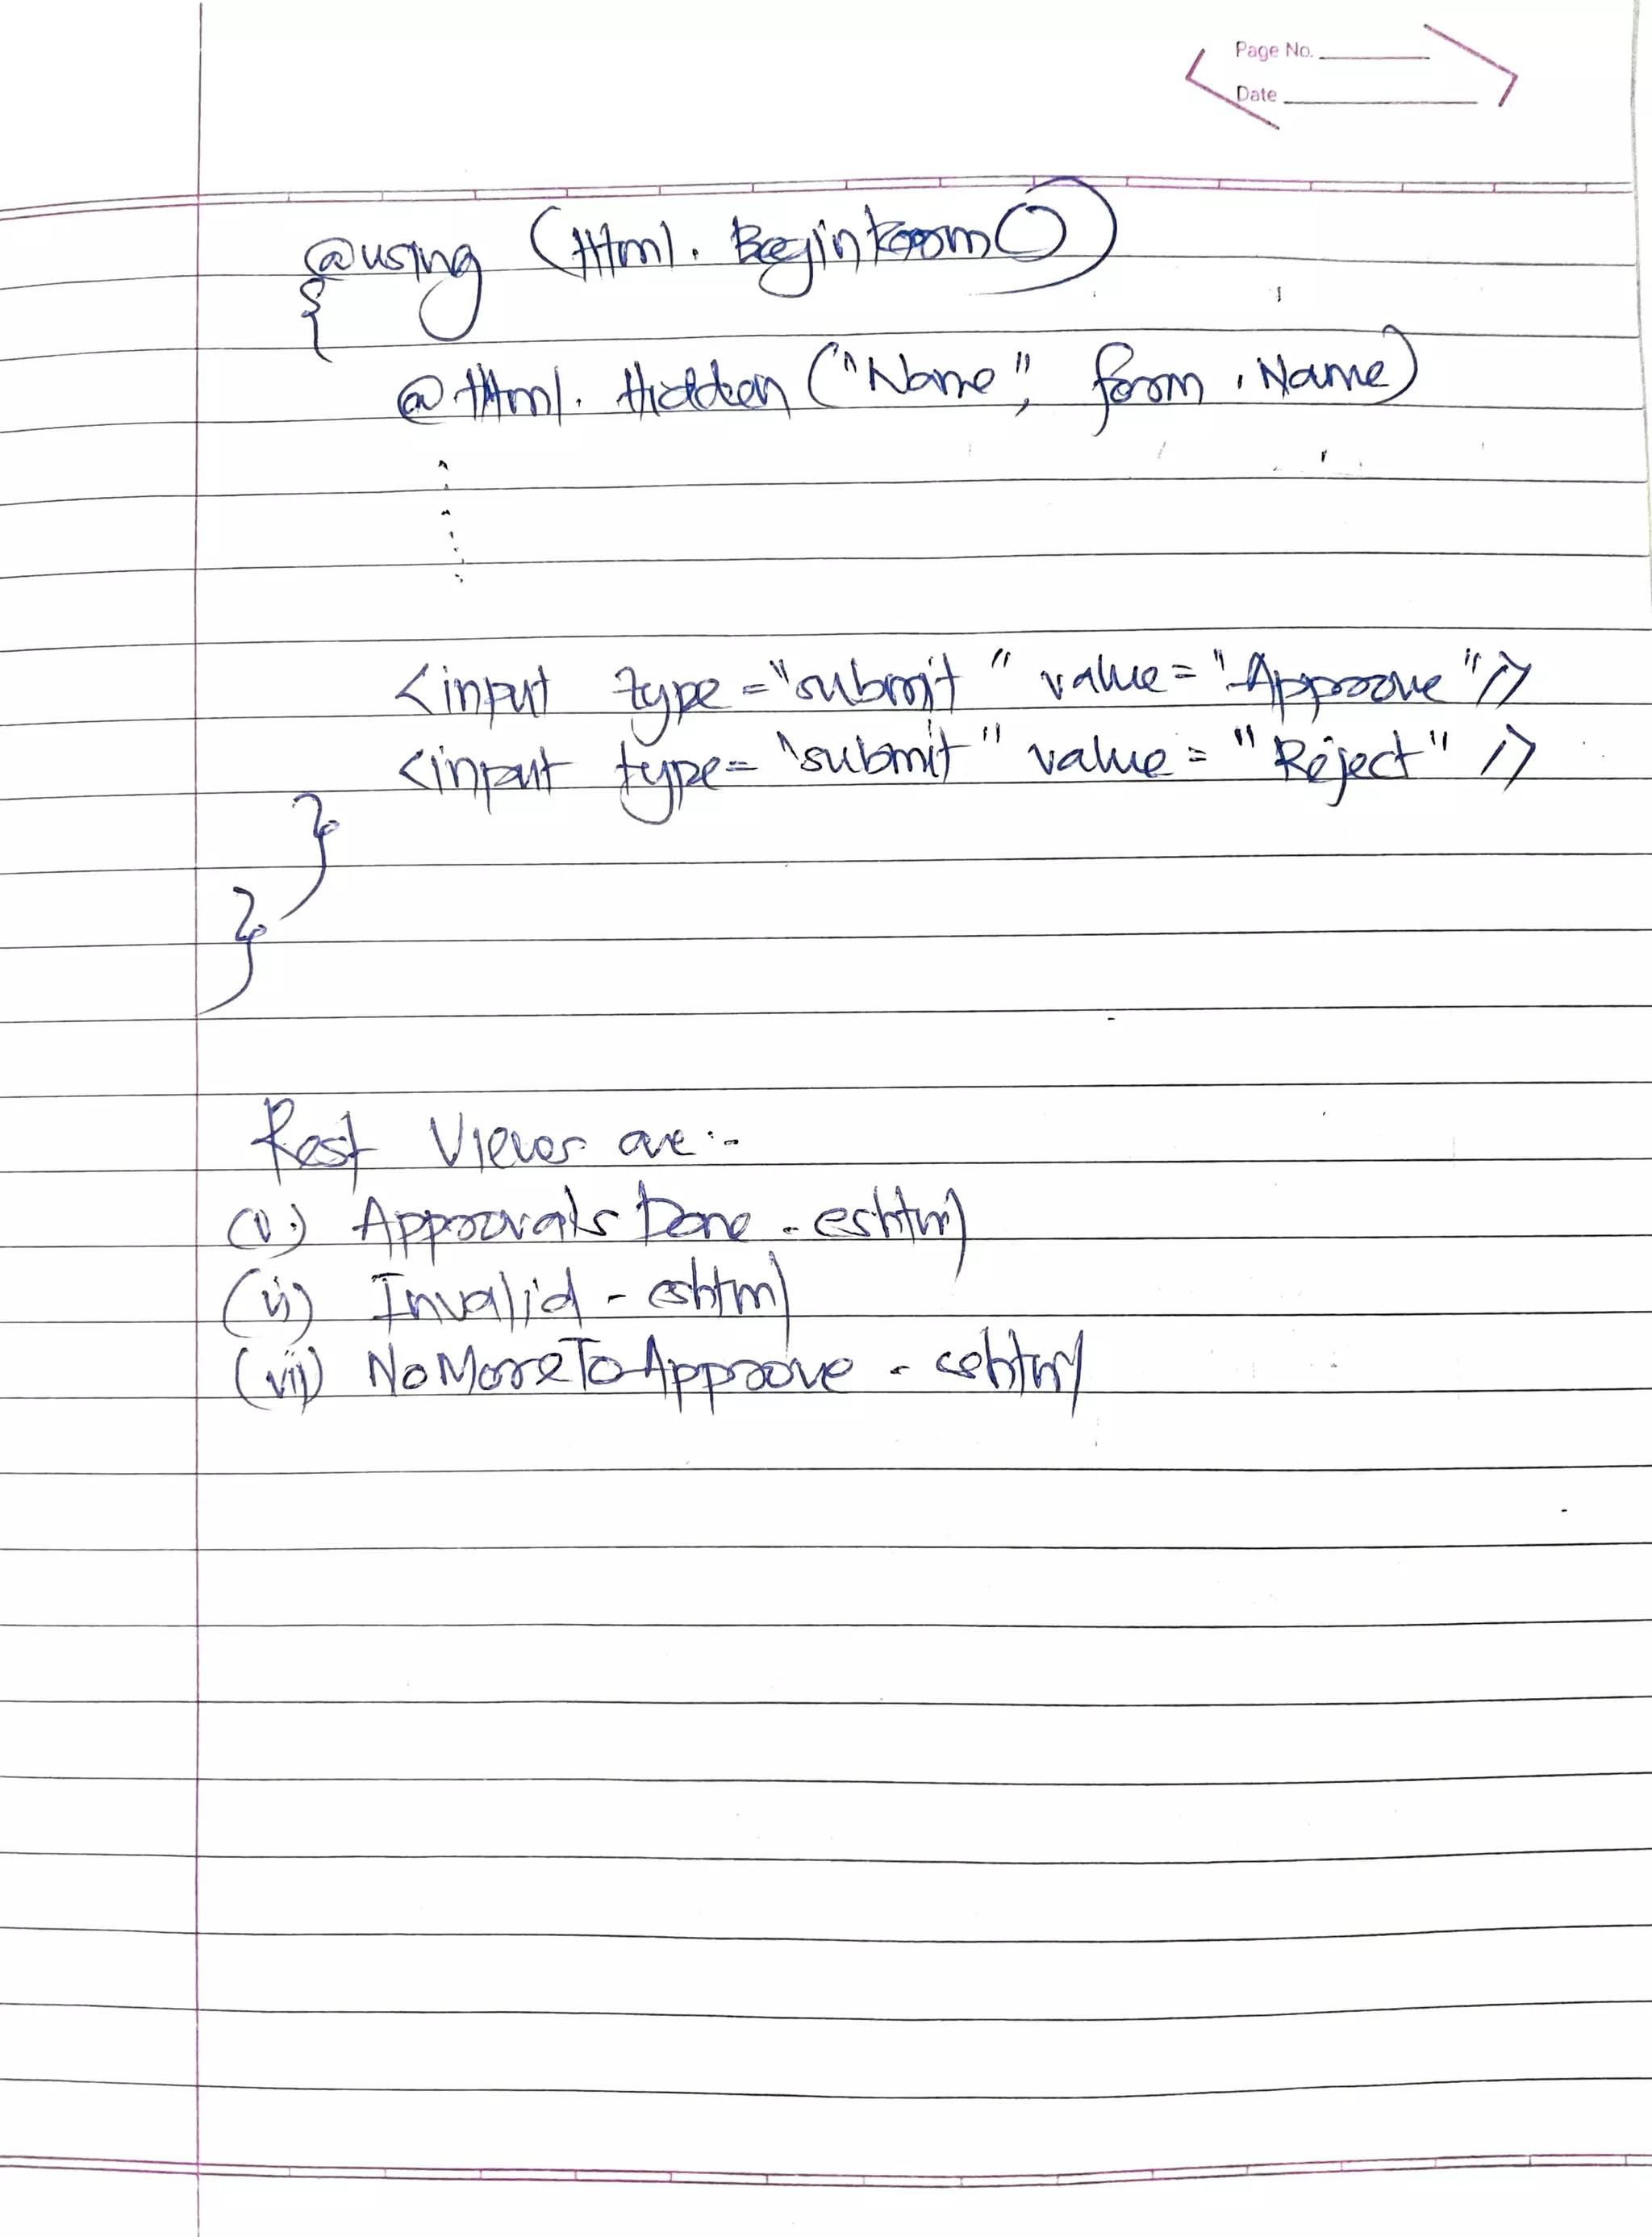 Page No.
Date
@using (Html. BeginForm())
{
@Html. Hidden ("Name", form . Name)
<input type ="submit" value = "Approve"/>
<input type= "submit" value = "Reject" />
}
}
Rest Views are :-
(v.) ApprovalsDone - cshtml
(vi) Invalid - cshtml
(vii) NoMoreToApprove - cshtml